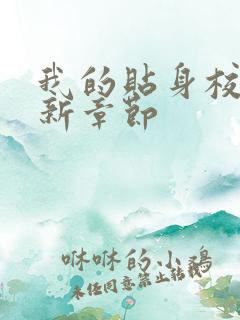 我的贴身校
新章节
咻咻的小鸡
未经同意禁止转载